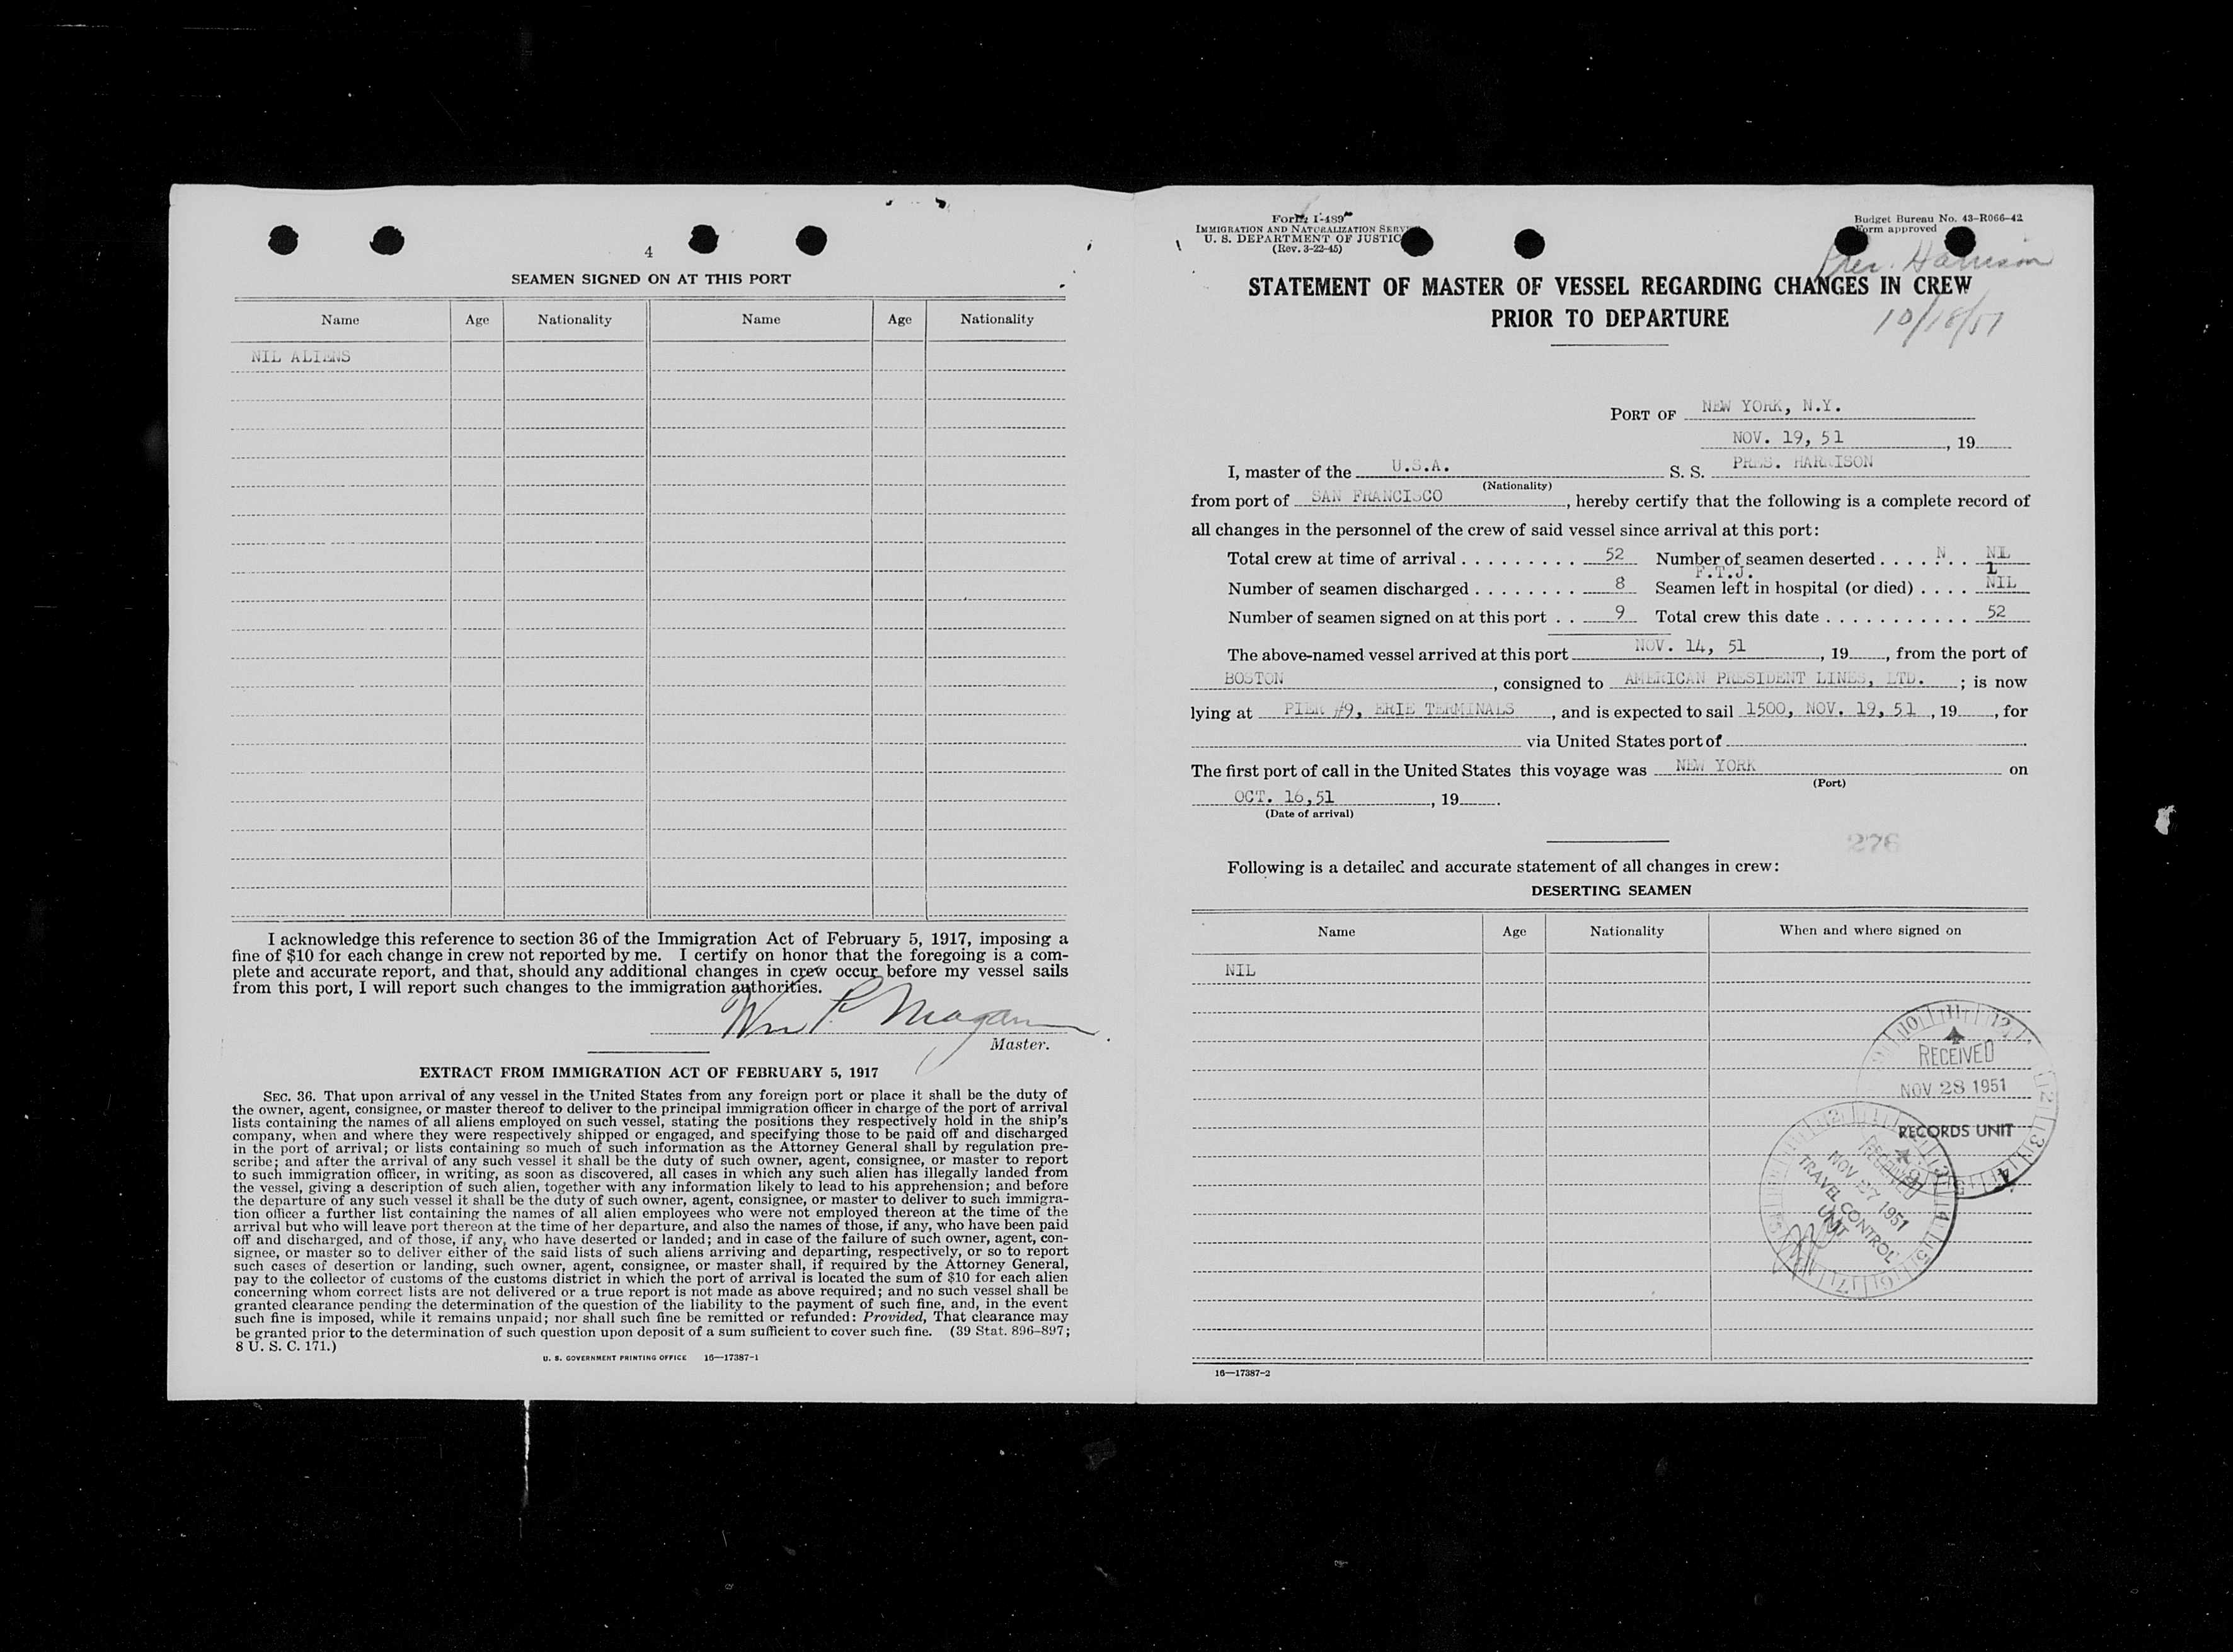 4
SEAMEN SIGNED ON AT THIS PORT
Name Age Nationality Name Age Nationality
NIL ALIENS
I acknowledge this reference to section 36 of the Immigration Act of February 5, 1917, imposing a
fine of $10 for each change in crew not reported by me. I certify on honor that the foregoing is a com-
plete and accurate report, and that, should any additional changes in crew occur before my vessel sails
from this port, I will report such changes to the immigration authorities.
Wm P.
Master.
EXTRACT FROM IMMIGRATION ACT OF FEBRUARY 5, 1917
SEC. 36. That upon arrival of any vessel in the United States from any foreign port or place it shall be the duty of
the owner, agent, consignee, or master thereof to deliver to the principal immigration officer in charge of the port of arrival
lists containing the names of all aliens employed on such vessel, stating the positions they respectively hold in the ship's
company, when and where they were respectively shipped or engaged, and specifying those to be paid off and discharged
in the port of arrival; or lists containing so much of such information as the Attorney General shall by regulation pre-
scribe; and after the arrival of any such vessel it shall be the duty of such owner, agent, consignee, or master to report
to such immigration officer, in writing, as soon as discovered, all cases in which any such alien has illegally landed from
the vessel, giving a description of such alien, together with any information likely to lead to his apprehension; and before
the departure of any such vessel it shall be the duty of such owner, agent, consignee, or master to deliver to such immigra-
tion officer a further list containing the names of all alien employees who were not employed thereon at the time of the
arrival but who will leave port thereon at the time of her departure, and also the names of those, if any, who have been paid
off and discharged, and of those, if any, who have deserted or landed; and in case of the failure of such owner, agent, con-
signee, or master so to deliver either of the said lists of such aliens arriving and departing, respectively, or so to report
such cases of desertion or landing, such owner, agent, consignee, or master shall, if required by the Attorney General,
pay to the collector of customs of the customs district in which the port of arrival is located the sum of $10 for each alien
concerning whom correct lists are not delivered or a true report is not made as above required; and no such vessel shall be
granted clearance pending the determination of the question of the liability to the payment of such fine, and, in the event
such fine is imposed, while it remains unpaid; nor shall such fine be remitted or refunded: Provided, That clearance may
be granted prior to the determination of such question upon deposit of a sum sufficient to cover such fine. (39 Stat. 896–897;
8 U. S. C. 171.)
U. S. GOVERNMENT PRINTING OFFICE 16—17387-1
Form I-489
IMMIGRATION AND NATURALIZATION
U. S. DEPARTMENT OF JUSTIC
(Rev. 3-22-45)
Budget Bureau No. 43-R066-42
Form approved
Pres. Harrison
STATEMENT OF MASTER OF VESSEL REGARDING CHANGES IN CREW
PRIOR TO DEPARTURE
10/18/51
PORT OF NEW YORK, N.Y.
NOV. 19, 51, 19
I, master of the U.S.A. S. S. PRES. HARRISON
(Nationality)
from port of SAN FRANCISCO, hereby certify that the following is a complete record of
all changes in the personnel of the crew of said vessel since arrival at this port:
Total crew at time of arrival . . . . . . . . . 52 Number of seamen deserted . . . . . N . . NIL
F.T.J. 1
Number of seamen discharged . . . . . . . . 8 Seamen left in hospital (or died) . . . . NIL
Number of seamen signed on at this port . . 9 Total crew this date . . . . . . . . . . . 52
The above-named vessel arrived at this port NOV. 14, 51, 19, from the port of
BOSTON, consigned to AMERICAN PRESIDENT LINES, LTD.; is now
lying at PIER #9, ERIE TERMINALS, and is expected to sail 1500, NOV. 19, 51, 19, for
via United States port of
The first port of call in the United States this voyage was NEW YORK on
(Port)
OCT. 16,51, 19.
(Date of arrival)
276
Following is a detailed and accurate statement of all changes in crew:
DESERTING SEAMEN
Name Age Nationality When and where signed on
NIL
RECEIVED
NOV 28 1951
RECORDS UNIT
RECEIVED
NOV 27 1951
TRAVEL CONTROL
UNIT
16—17387-2